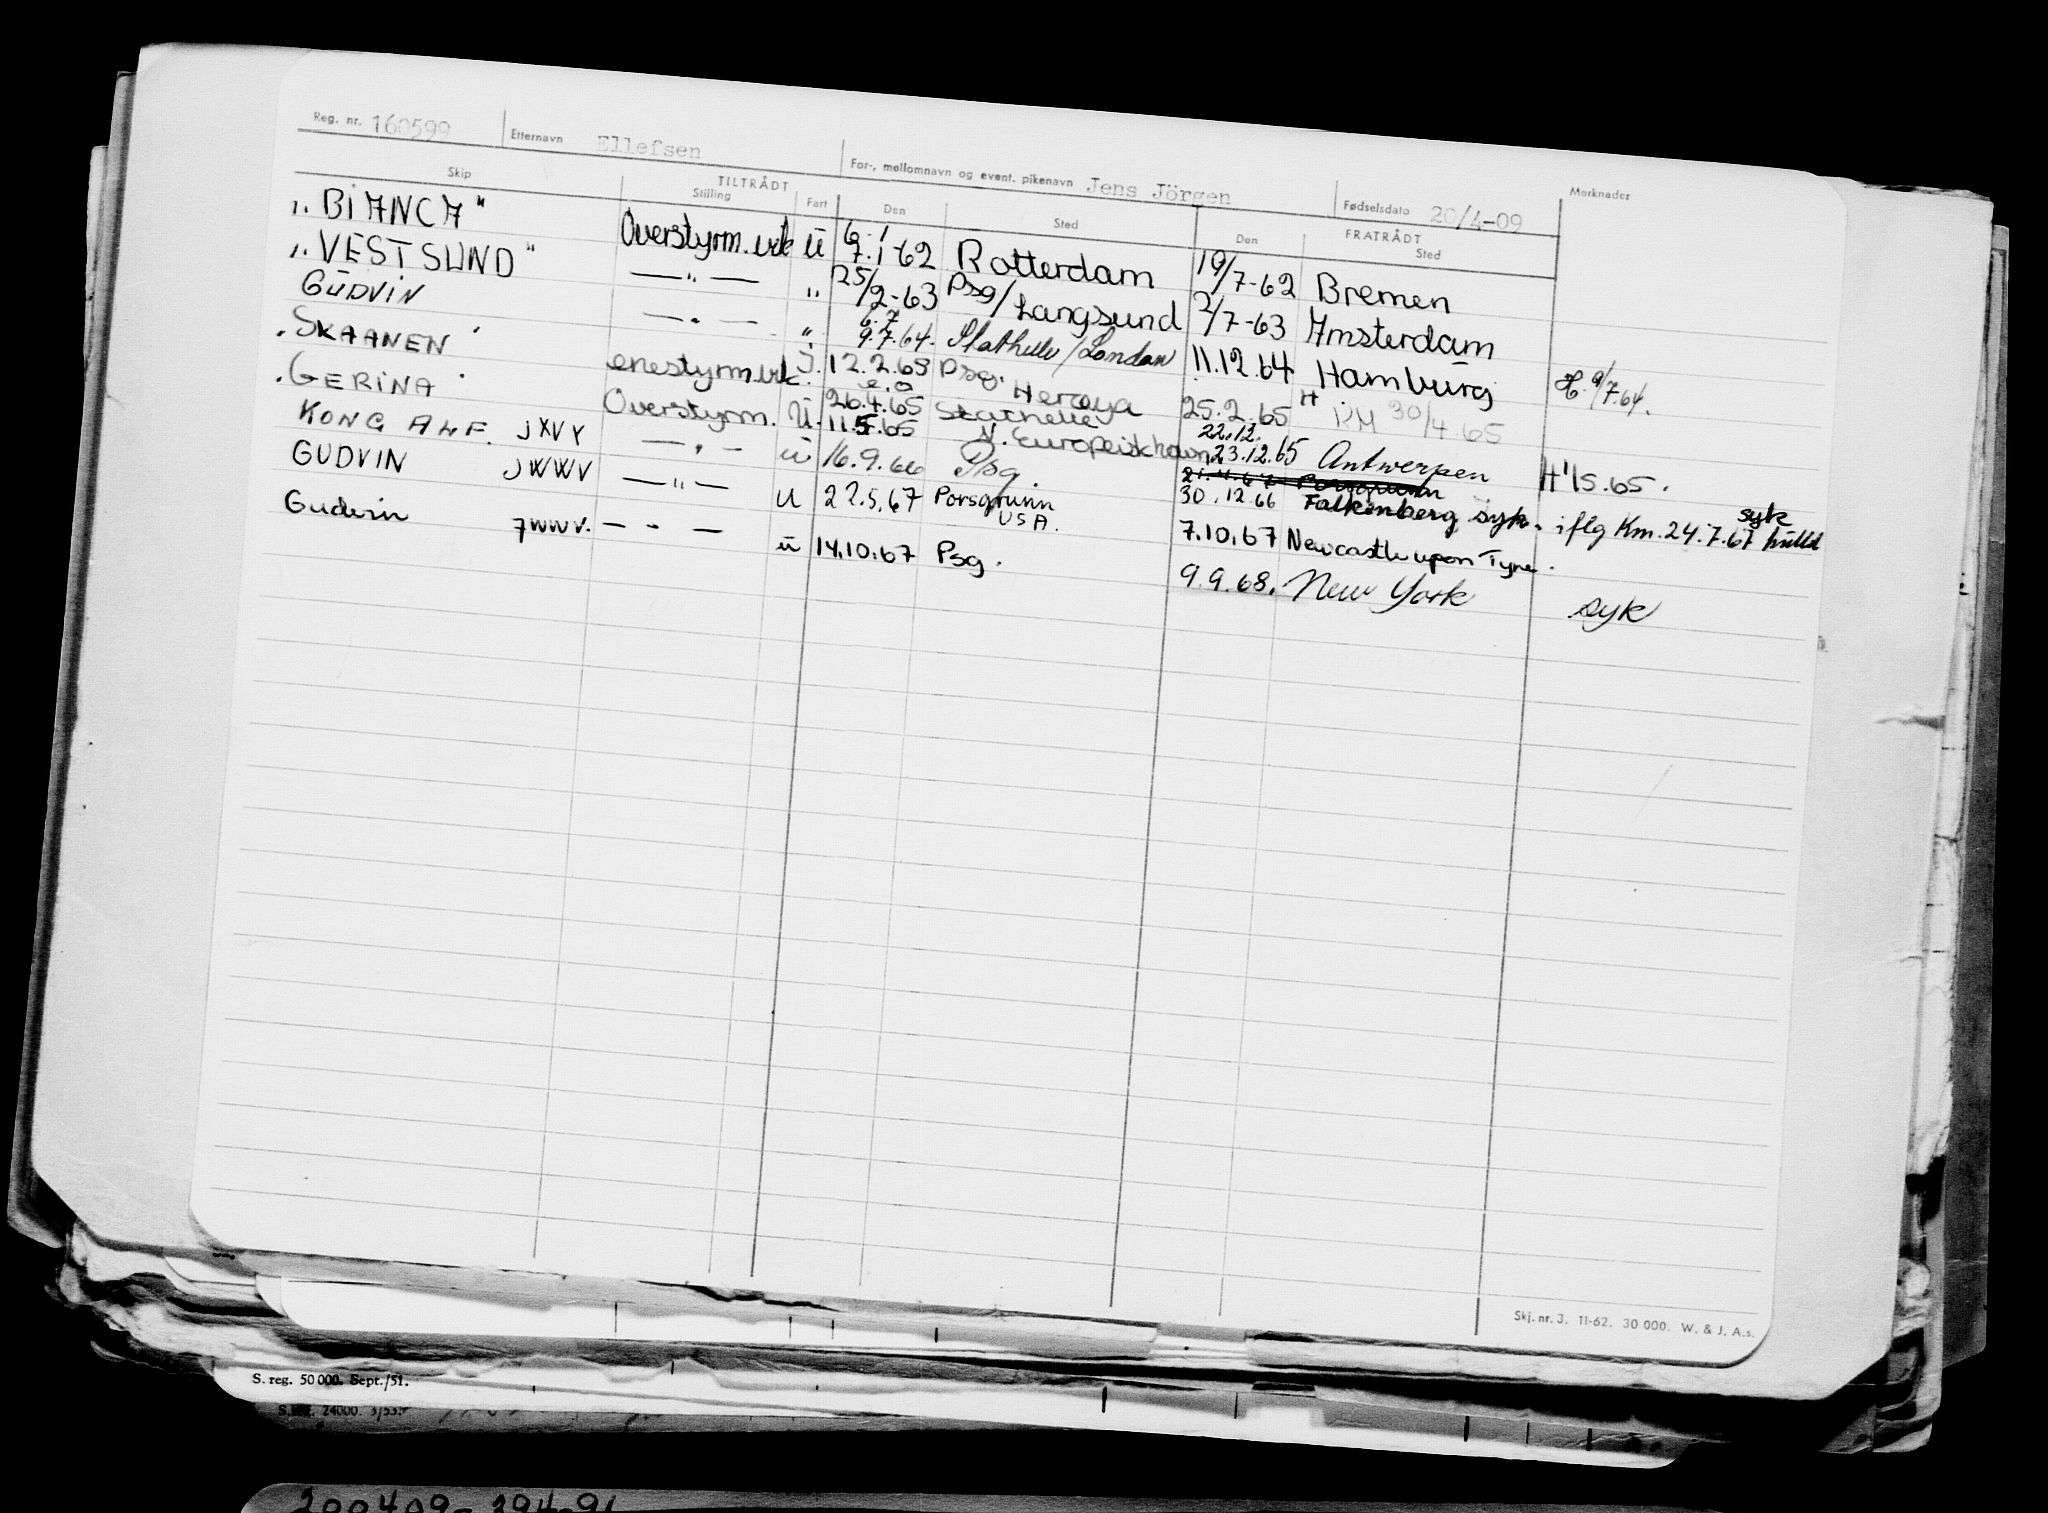 Reg. nr. 160599 Etternavn Ellefsen For-, mellomnavn og event. pikenavn Jens Jörgen Fødselsdato 20/4-09 Merknader
TILTRÅDT FRATRÅDT
Skip Stilling Fart Den Sted Den Sted
"BIANCA" Overstyrm. vik ü 6.1 7.1-62 Rotterdam 19/7-62 Bremen
"VESTSUND" —"— " 25/2-63 Psg/Langsund 2/7-63 Amsterdam
GÜDVIN —"— " 6.7 9.7.64. Stathelle/London 11.12.64 Hamburg H. 9/7.64.
"SKAANEN" enestyrm.vik. J. 12.2.65 Psg. Heröya 25.2.65
"GERINA" Overstyrm. Ü. 26.4.65 Skathelle H RM 30/4 65
11.5.65 N. Europeisk havn 22.12. 23.12.65 Antwerpen H 1/5.65.
KONG ALF. JXVY —"— ü 16.9.66 Psg. 30.12.66 Falkenberg syk. iflg Km. 24.7.67 syk
GUDVIN JWWV —"— U 22.5.67 Porsgrunn USA. 7.10.67 Newcastle upon Tyne.
Gudvin JWWV. —"— ü 14.10.67 Psg. 9.9.68. New York syk
Skj. nr. 3. 11-62. 30 000. W. & J. A.s.
S. reg. 50 000. Sept./51.
24000. 3/53.
200409-394-91